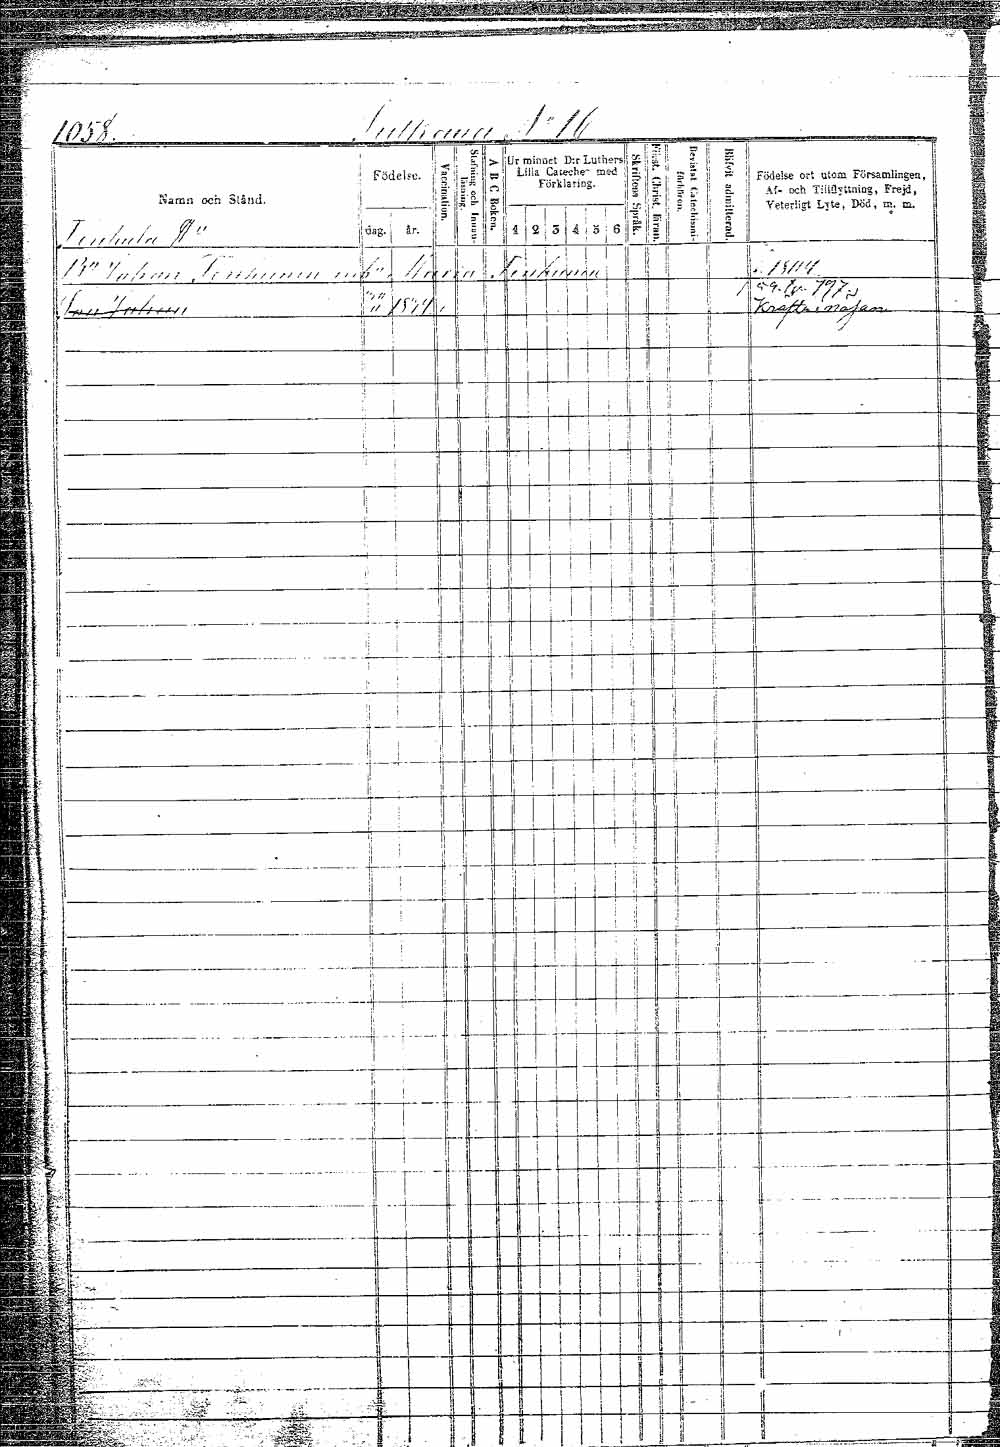 1058.
Sulkava No 16
Namn och Stånd.
Födelse.
dag.
år.
Vaccination.
Stafning och Innan-
läsning.
A B C Boken.
Ur minnet D:r Luthers
Lilla Cateches med
Förklaring.
1 2 3 4 5 6
Skriftens Språk.
Först. Christ. läran.
Bevistat Catechismi-
förhören.
Blifvit admitterad.
Födelse ort utom Församlingen,
Af- och Tillflyttning, Frejd,
Veterligt Lyte, Död, m. m.
Johan Tenhunen Maria Tenhunen
Son Johan
Kräfta i näsan